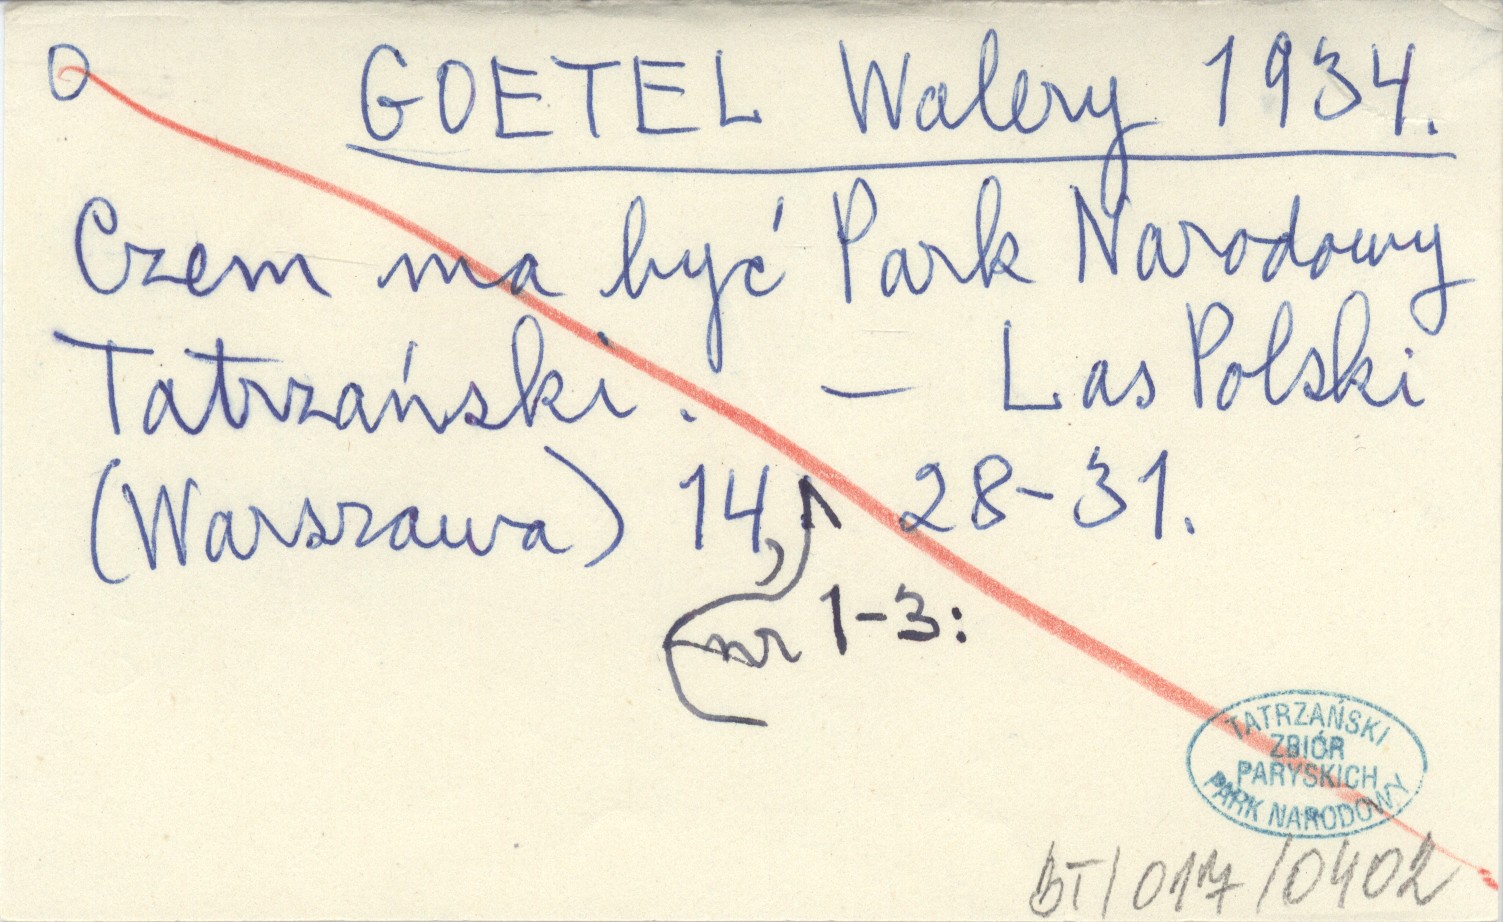 O GOETEL Walery 1934.
Czem ma być Park Narodowy
Tatrzański. — Las Polski
(Warszawa) 14, 28-31.
nr 1-3:
TATRZAŃSKI
ZBIÓR
PARYSKICH
PARK NARODOWY
BT/017/0402